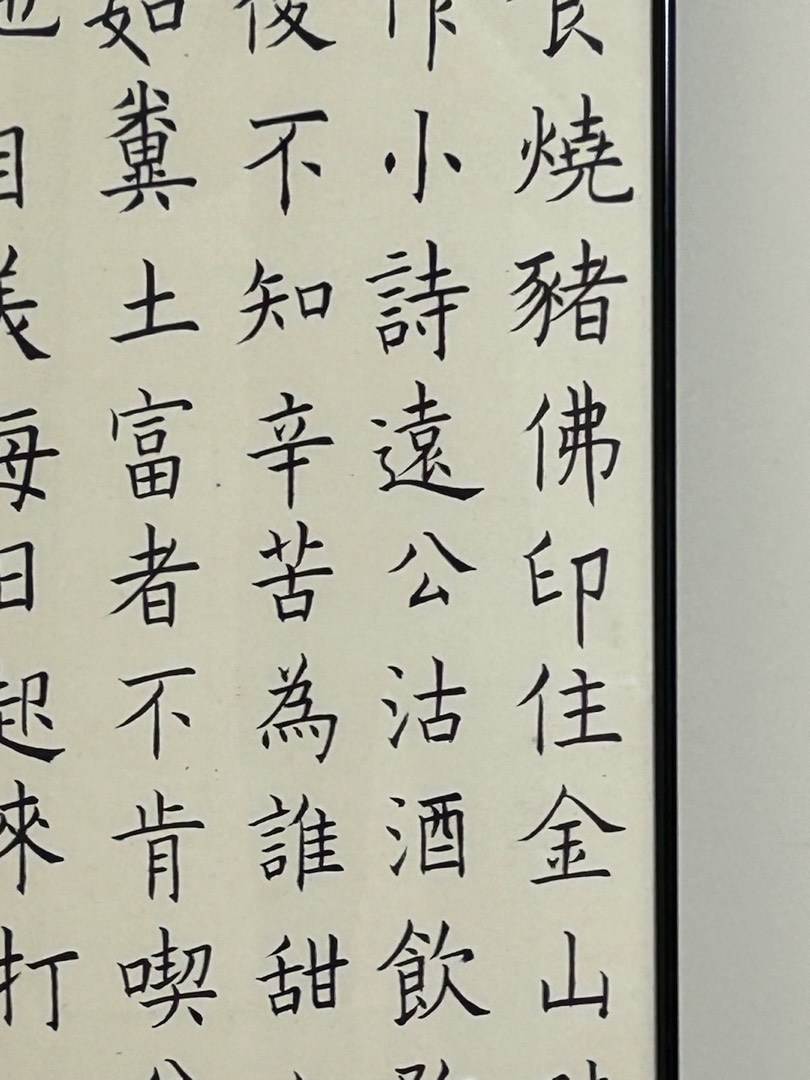 食燒豬佛印住金山
作小詩遠公沽酒飲
後不知辛苦為誰甜
如糞土富者不肯喫
自美每日起來打